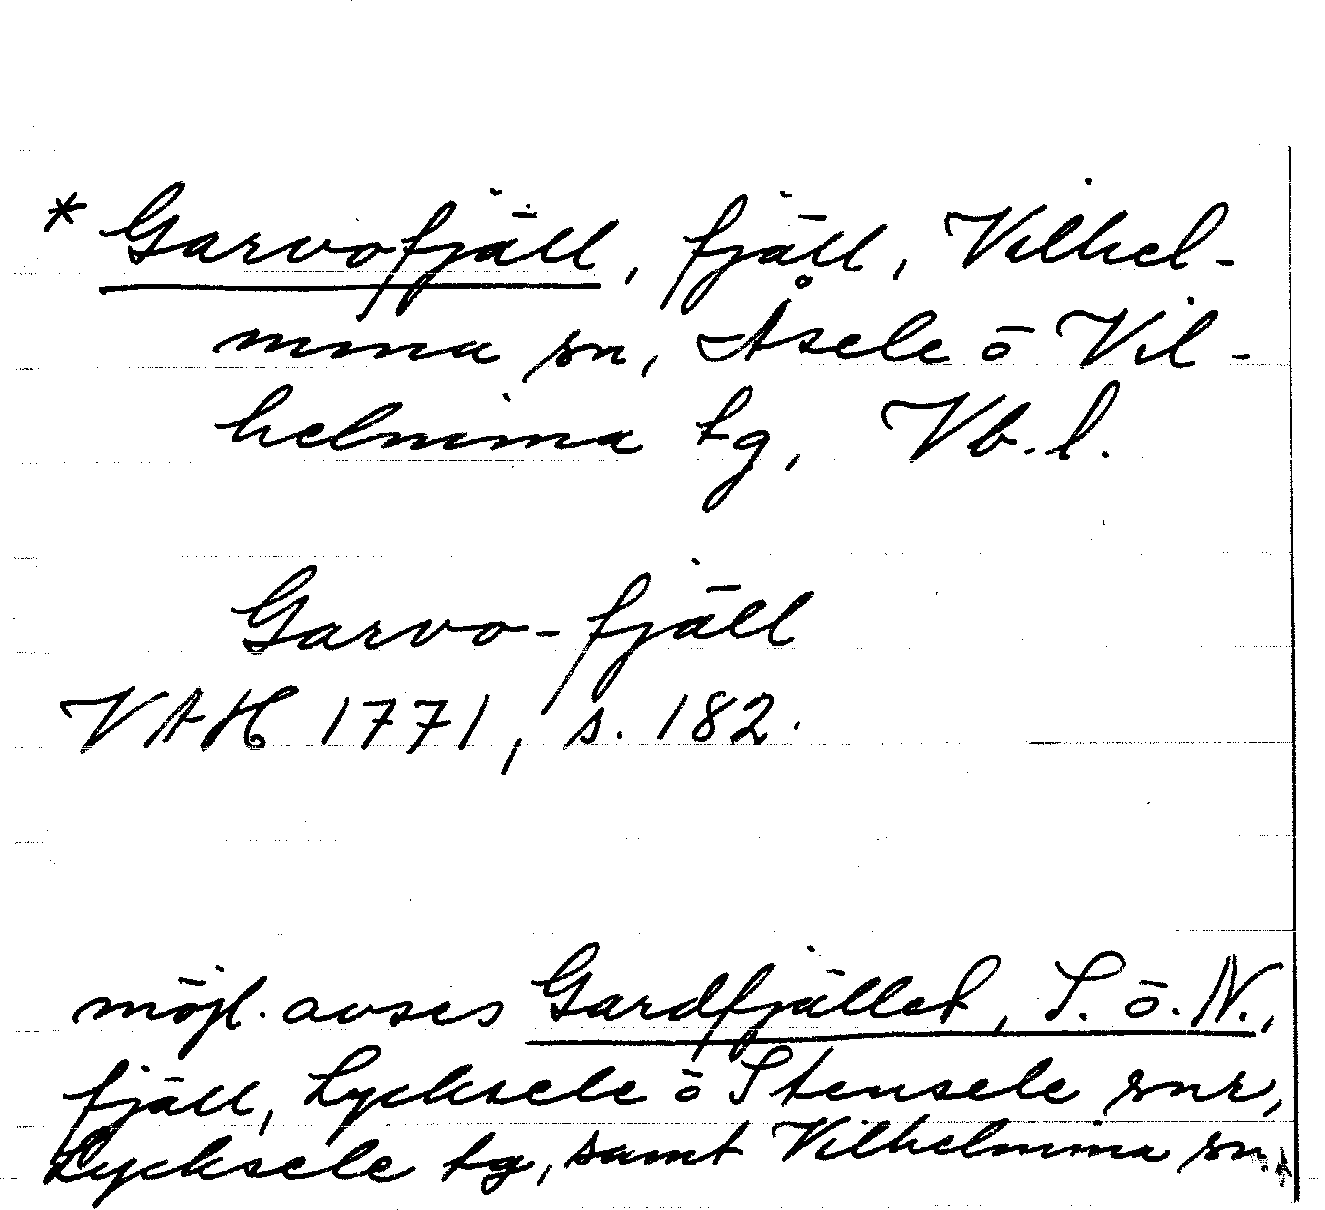 * Garvofjäll, fjäll, Vilhel-
mina sn, Åsele o Vil-
helmina tg, Vb. l.
Garvo-fjäll
VAH 1771, s. 182.
möjl. avses Gardfjället, S. o. N.,
fjäll, Lycksele o Stensele snr,
Lycksele tg, samt Vilhelmina sn,